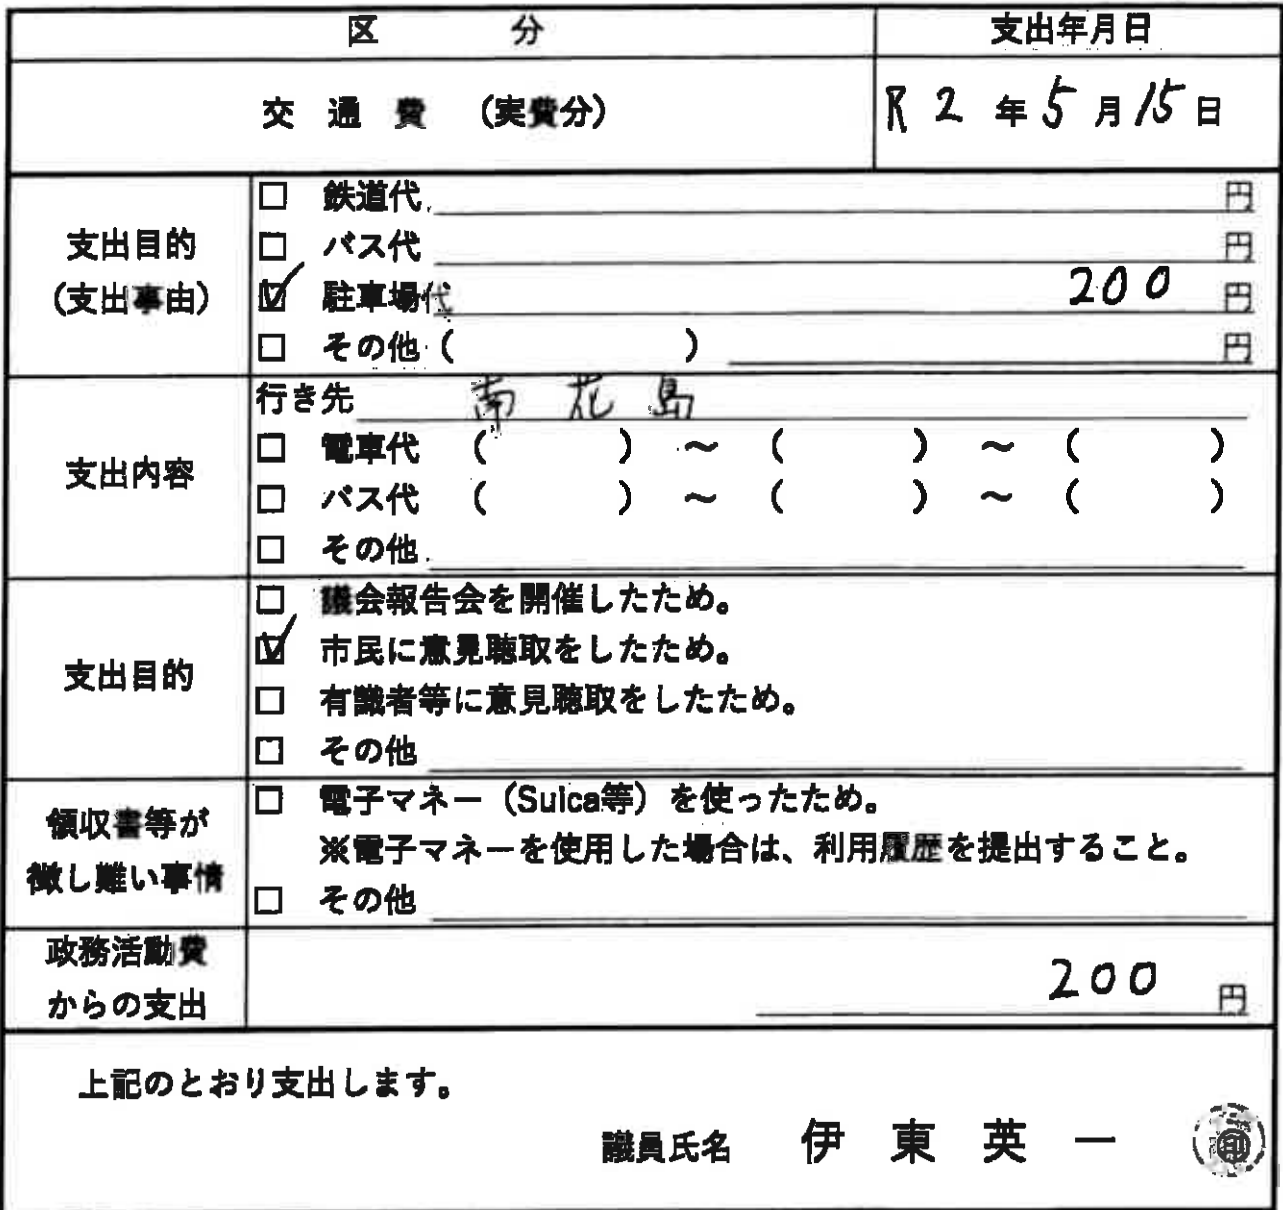 区 分 支出年月日
交 通 費 (実費分) R 2 年 5 月 15 日
支出目的
(支出事由)
□ 鉄道代 円
□ バス代 円
☑ 駐車場代 200 円
□ その他 ( ) 円
支出内容
行き先 南花島
□ 電車代 ( ) ～ ( ) ～ ( )
□ バス代 ( ) ～ ( ) ～ ( )
□ その他
支出目的
□ 議会報告会を開催したため。
☑ 市民に意見聴取をしたため。
□ 有識者等に意見聴取をしたため。
□ その他
領収書等が
徴し難い事情
□ 電子マネー (Suica等) を使ったため。
※電子マネーを使用した場合は、利用履歴を提出すること。
□ その他
政務活動費
からの支出
200 円
上記のとおり支出します。
議員氏名 伊 東 英 一 印